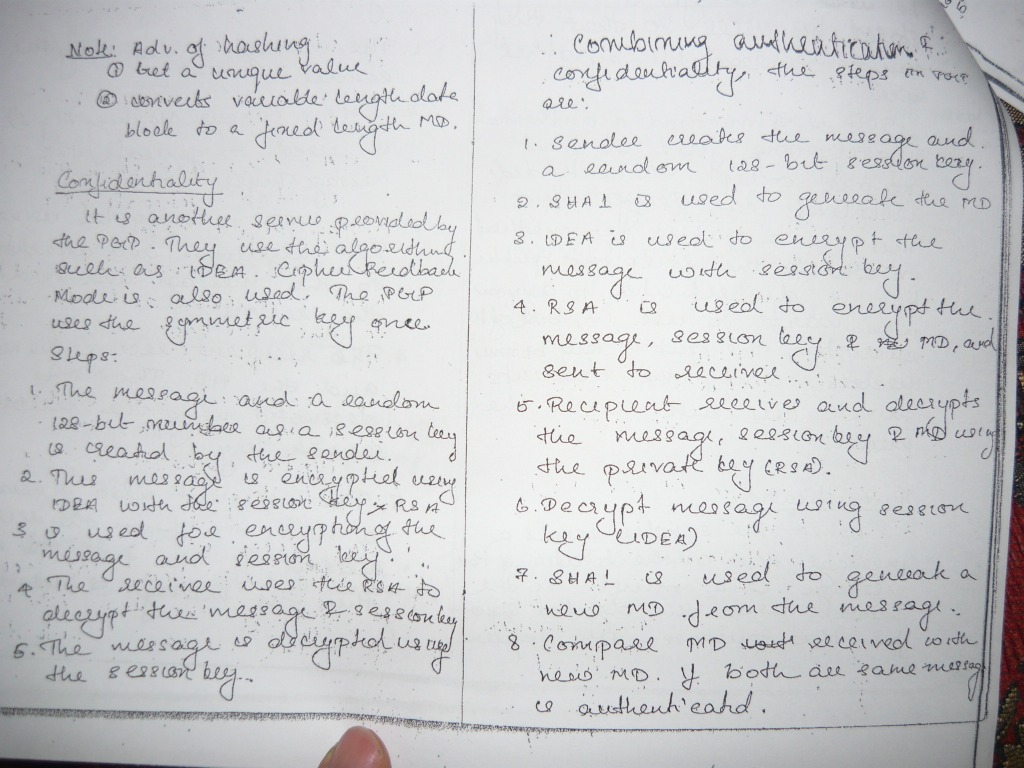 Note: Adv. of hashing
① Get a unique value
② converts variable length data
block to a fixed length MD.
Confidentiality
It is another service provided by
the PGP. They use the algorithm
such as IDEA. Cipher Feedback
Mode is also used. The PGP
uses the symmetric key once.
Steps:
1. The message and a random
128-bit number as a session key
is created by the sender.
2. This message is encrypted using
IDEA with the session key. RSA
3 is used for encryption of the
message and session key.
4 The receiver uses the RSA to
decrypt the message & session key
5. The message is decrypted using
the session key.
Combining authentication &
confidentiality, the steps in
are:
1. Sender creates the message and
a random 128-bit session key.
2. SHA1 is used to generate the MD
3. IDEA is used to encrypt the
message with session key.
4. RSA is used to encrypt the
message, session key & MD, and
sent to receiver
5. Recipient receiver and decrypts
the message, session key & MD using
the private key (RSA).
6. Decrypt message using session
key (IDEA)
7. SHA1 is used to generate a
new MD from the message.
8 Compare MD received with
new MD. If both are same message
is authenticated.